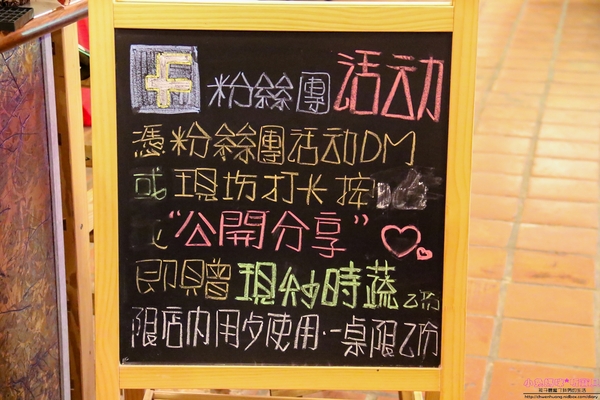 f 粉絲團 活动
憑粉絲團活动DM
或現场打卡按
“公開分享”
即贈現炒時蔬乙份
限店內用歺使用·一桌限乙份